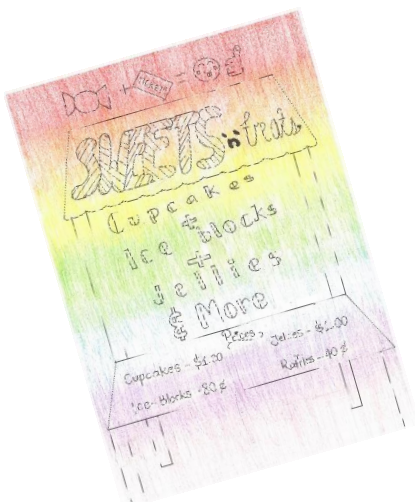 SWEETS n treats
Cupcakes
+
Ice blocks
+
Jellies
& More
Prices
Cupcakes -
Jellies -
Ice-Blocks -80¢
Raffles -40¢